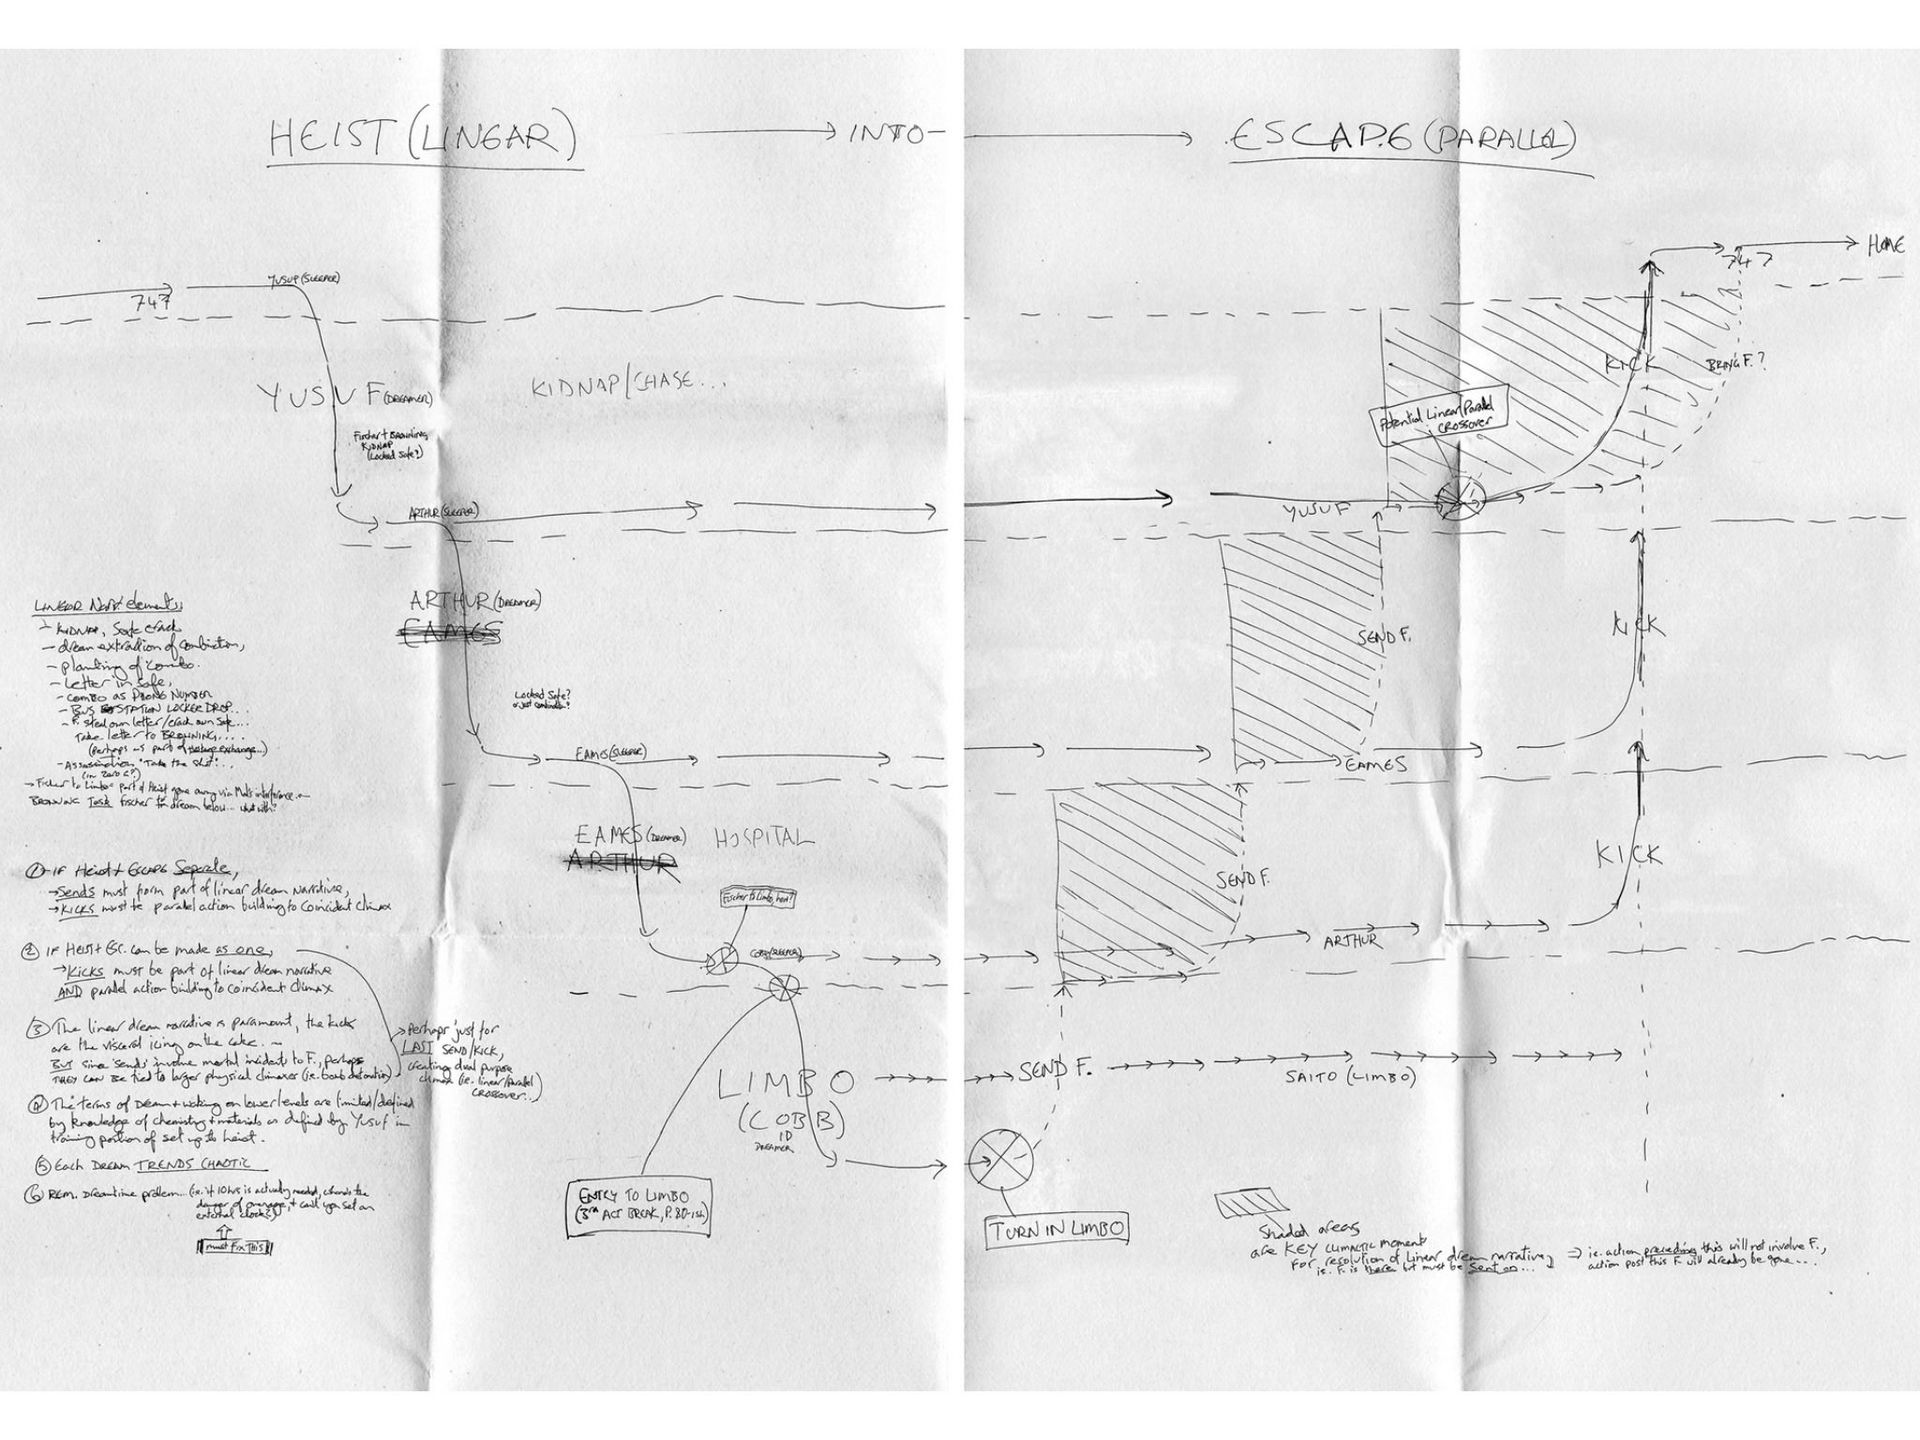 HEIST (LINEAR)
INTO
ESCAPE (PARALLEL)
747
YUSUF (SLEEPER)
747
HOME
YUSUF (DREAMER)
KIDNAP/CHASE...
KICK
BRING F.?
Fischer + BROWNING
KIDNAP
(Locked Safe?)
Potential Linear/Parallel
CROSSOVER
ARTHUR (SLEEPER)
YUSUF
ARTHUR (DREAMER)
EAMES
SEND F.
KICK
LINEAR Narr. elements:
- KIDNAP, Safe crack
- dream extraction of combination,
- planting of combo.
- Letter in safe,
- COMBO as PHONE NUMBER
- BUS STATION LOCKER DROP...
- F. steal own letter/crack own safe...
Take letter to BROWNING....
(perhaps as part of hostage exchange...)
- Assassination "Take the shot"...
(in Zero G?)
→ Fischer to Limbo part of Heist gone awry via Mal's interference
BROWNING Fischer dream below... what with?
Locked Safe?
or just combination?
EAMES (SLEEPER)
EAMES
EAMES (DREAMER)
HOSPITAL
ARTHUR
SEND F.
KICK
Fischer to Limbo, here?
COBB (SLEEPER)
ARTHUR
① IF Heist + ESCAPE Separate,
→ Sends must form part of linear dream narrative,
→ KICKS must be parallel action building to Coincident Climax
② IF HEIST + ESC. can be made as one,
→ Kicks must be part of linear dream narrative
AND parallel action building to coincident climax
③ The linear dream narrative is paramount, the kicks
are the visceral icing on the cake...
BUT since 'sends' involve mortal incident to F., perhaps
THEY CAN BE tied to larger physical climaxes (i.e. bomb detonation)
→ Perhaps just for
LAST SEND/KICK,
creating dual purpose
climax (i.e. linear/parallel
CROSSOVER..)
④ The terms of Dream + waking on lower levels are limited/defined
by knowledge of chemistry + materials as defined by YUSUF in
training portion of set up to heist.
⑤ Each DREAM TRENDS CHAOTIC
⑥ REM. Dreamtime problem... (i.e. if 10hrs is actually needed, where's the
danger of overage, + can't you set an
external clock?)
must Fix This
LIMBO
(COBB)
ID
DREAMER
SEND F.
SAITO (LIMBO)
ENTRY TO LIMBO
(3RD ACT BREAK, P. 80-ish)
TURN IN LIMBO
Shaded areas
are KEY CLIMACTIC moments
FOR resolution of Linear dream narrative,
i.e. F. is there but must be sent on...
⇒ i.e. action preceding this will not involve F.,
action post this F. will already be gone...